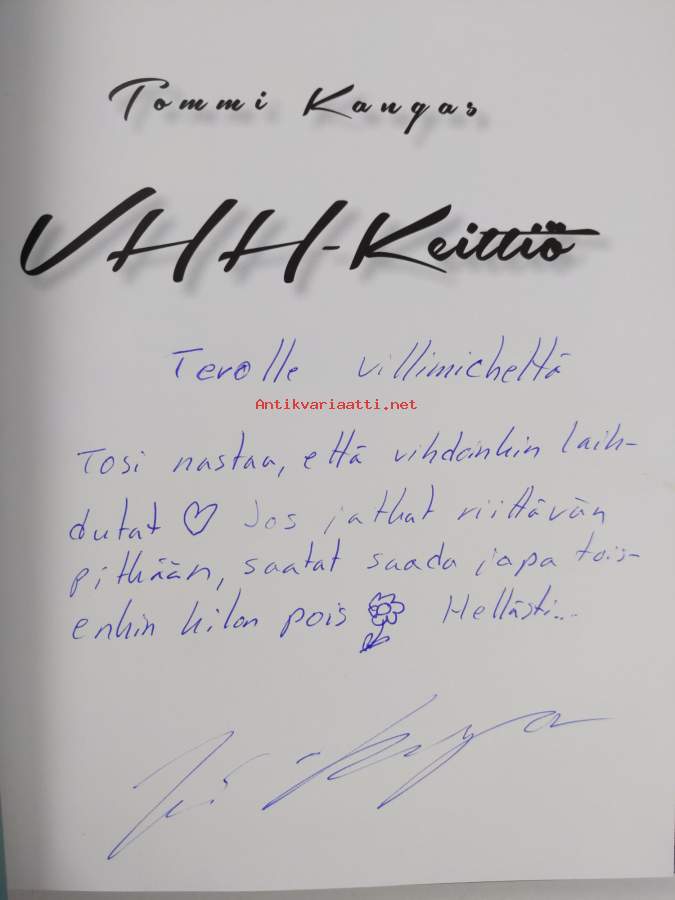 Tommi Kangas
VHH-Keittiö
Terolle villimieheltä
Antikvariaatti.net
Tosi nastaa, että vihdoinkin laih-
dutat ♡ Jos jatkat riittävän
pitkään, saatat saada jopa tois-
enkin kilon pois Hellästi...